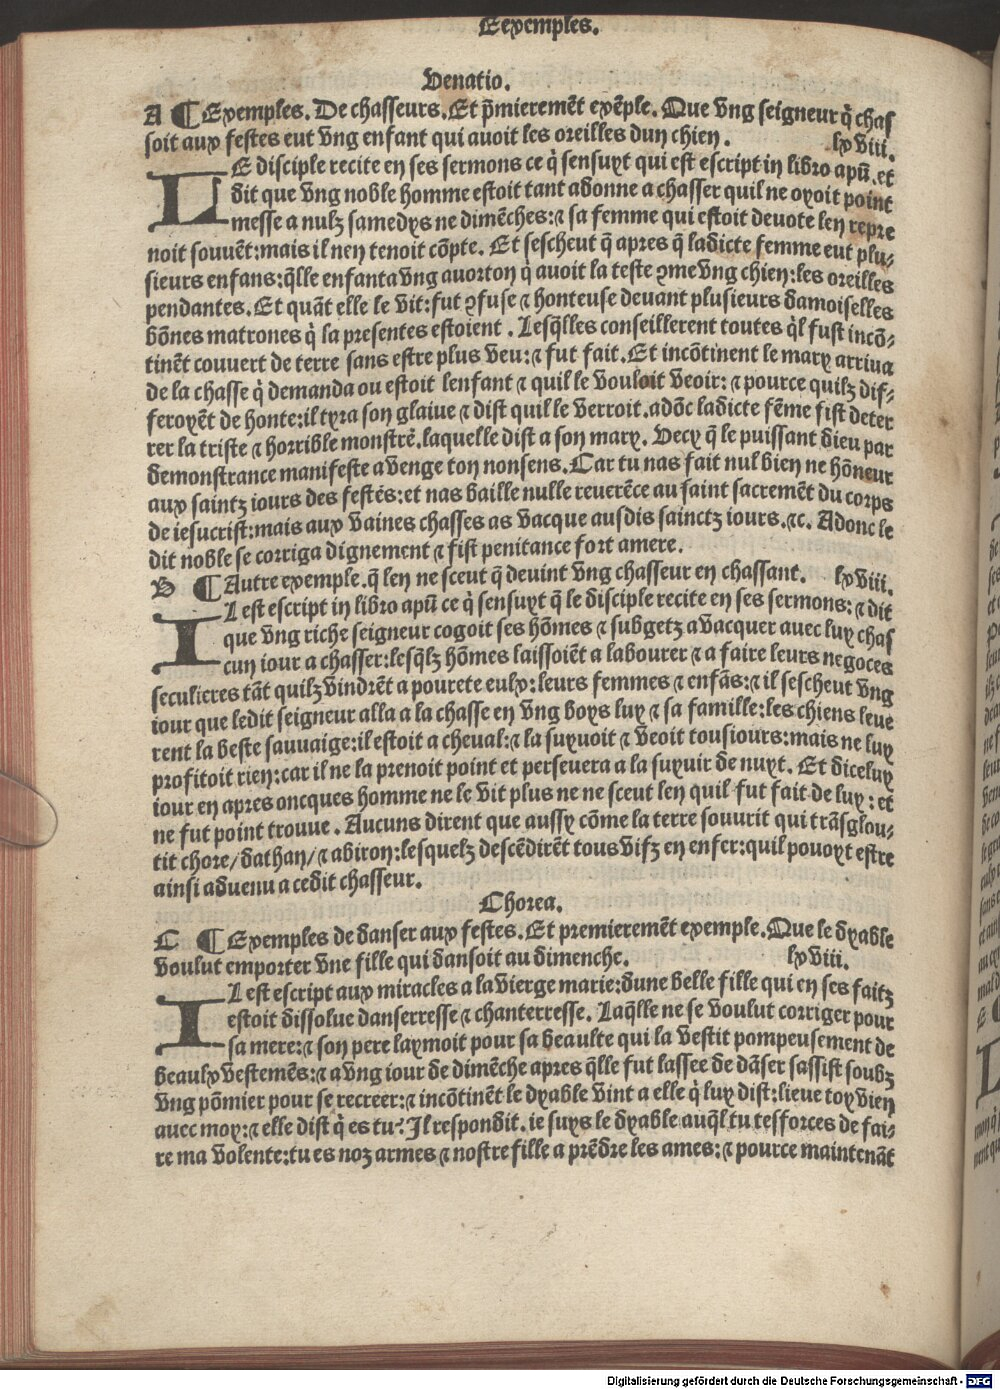 Eexemples.
Venatio.
A ¶ Exemples. De chasseurs. Et p̄mieremēt exēple. Que vng seigneur q̇ chas
soit aux festes eut vng enfant qui auoit les oreilles dun chien. lxviii.
LE disciple recite en ses sermons ce q̇ sensuyt qui est escript in libro apū. et
dit que vng noble homme estoit tant adonne a chasser quil ne oyoit point
messe a nulz samedys ne dimēches: ⁊ sa femme qui estoit deuote len repre
noit souuēt: mais il nen tenoit cōpte. Et sescheut q̄ apres q̄ ladicte femme eut plu⸗
sieurs enfans: q̄lle enfanta vng auorton q̇ auoit la teste ꝯme vng chien: les oreilles
pendantes. Et quāt elle le vit: fut ꝯfuse ⁊ honteuse deuant plusieurs damoiselles
bōnes matrones q̇ la presentes estoient. Lesq̄lles conseillerent toutes q̇l fust incō⸗
tinēt couuert de terre sans estre plus veu: ⁊ fut fait. Et incōtinent le mary arriua
de la chasse q̇ demanda ou estoit lenfant ⁊ quil le vouloit veoir: ⁊ pource quilz dif⸗
feroyēt de honte: il tyra son glaiue ⁊ dist quil le verroit. adōc ladicte fēme fist deter
rer la triste ⁊ horrible monstre. laquelle dist a son mary. Vecy q̄ le puissant dieu par
demonstrance manifeste a venge ton nonsens. Car tu nas fait nul bien ne hōneur
aux saintz iours des festes: et nas baille nulle reuerēce au saint sacremēt du corps
de iesucrist: mais aux vaines chasses as vacque ausdis sainctz iours. ⁊c. Adonc le
dit noble se corriga dignement ⁊ fist penitance fort amere.
B ¶ Autre exemple. q̄ len ne sceut q̄ deuint vng chasseur en chassant. lxviii.
IL est escript in libro apū ce q̇ sensuyt q̄ le disciple recite en ses sermons: ⁊ dit
que vng riche seigneur cogoit ses hōmes ⁊ subgetz a vacquer auec luy chas
cun iour a chasser: lesq̄lz hōmes laissoiēt a labourer ⁊ a faire leurs negoces
seculieres tāt quilz vindrēt a pourete eulx: leurs femmes ⁊ enfās: ⁊ il sescheut vng
iour que ledit seigneur alla a la chasse en vng boys luy ⁊ sa famille: les chiens leue
rent la beste sauuaige: il estoit a cheual: ⁊ la suyuoit ⁊ veoit tousiours: mais ne luy
profitoit rien: car il ne la prenoit point et perseuera a la suyuir de nuyt. Et diceluy
iour en apres oncques homme ne le vit plus ne ne sceut len quil fut fait de luy: et
ne fut point trouue. Aucuns dirent que aussy cōme la terre souurit qui trāsglou⸗
tit chore/ dathan/ ⁊ abiron: lesquelz descēdirēt tous vifz en enfer: quil pouoyt estre
ainsi aduenu a cedit chasseur.
Chorea.
C ¶ Exemples de danser aux festes. Et premieremēt exemple. Que le dyable
voulut emporter vne fille qui dansoit au dimenche. lxviii.
IL est escript aux miracles a la vierge marie: dune belle fille qui en ses faitz
estoit dissolue danserresse ⁊ chanterresse. Laq̄lle ne se voulut corriger pour
sa mere: ⁊ son pere laymoit pour sa beaulte qui la vestit pompeusement de
beaulx vestemēs: ⁊ a vng iour de dimēche apres q̄lle fut lassee de dāser sassist soubz
vng pōmier pour se recreer: ⁊ incōtinēt le dyable vint a elle q̇ luy dist: lieue toy vien
auec moy: ⁊ elle dist q̇ es tu? Il respondit. ie suys le dyable auq̄l tu tesforces de fai⸗
re ma volente: tu es noz armes ⁊ nostre fille a prēdre les ames: ⁊ pource maintenāt
Digitalisierung gefördert durch die Deutsche Forschungsgemeinschaft - DFG